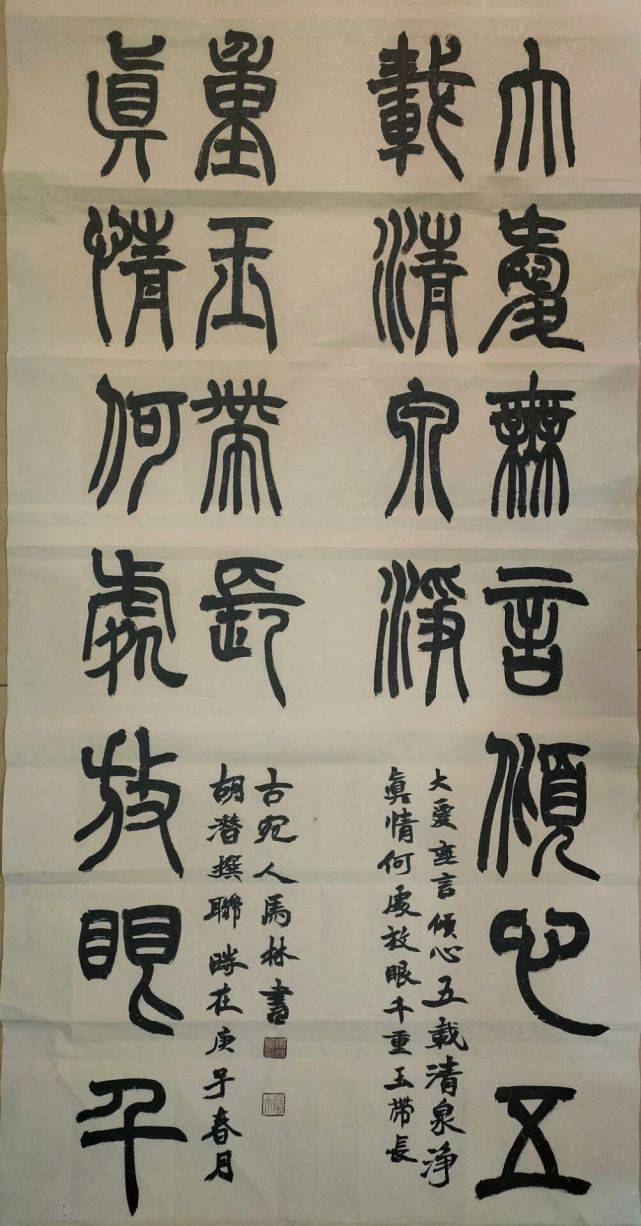 大愛無言傾心五
載清泉淨
大愛無言傾心五載清泉淨
眞情何處放眼千重玉帶長
眞情何處放眼千
重玉帶長
胡潛撰聯時在庚子春月
古宛人馬林書